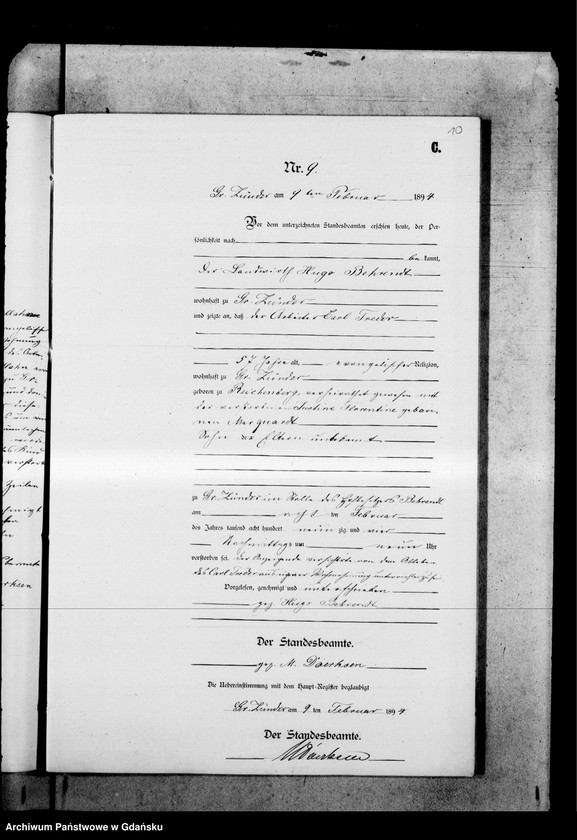 10
C.
Nr. 9.
Gr. Zünder am 9 ten Februar 1894.
Vor dem unterzeichneten Standesbeamten erschien heute, der Per-
sönlichkeit nach
be kannt,
Der Landwirth Hugo Behrendt
wohnhaft zu Gr. Zünder
und zeigte an, daß der Arbeiter Carl Treder
57 Jahre alt, evangelischer Religion,
wohnhaft zu Gr. Zünder
geboren zu Reichenberg, verheirathet gewesen mit
der verstorbenen Justine Florentine gebore-
nen Marquardt
Sohn der Eltern unbekannt
zu Gr. Zünder im Stalle des Hofbesitzers Behrendt
am acht ten Februar
des Jahres tausend acht hundert neun zig und vier
Nachmittags um neun Uhr
verstorben sei. Der Anzeigende versicherte von dem Ableben
des Carl Treder aus eigener Wissenschaft unterrichtet zu sein
Vorgelesen, genehmigt und unterschrieben
gez. Hugo Behrendt
Der Standesbeamte.
gez. M. Doerksen
Die Uebereinstimmung mit dem Haupt-Register beglaubigt
Gr. Zünder am 9 ten Februar 1894
Der Standesbeamte.
MDoerksen
Archiwum Państwowe w Gdańsku